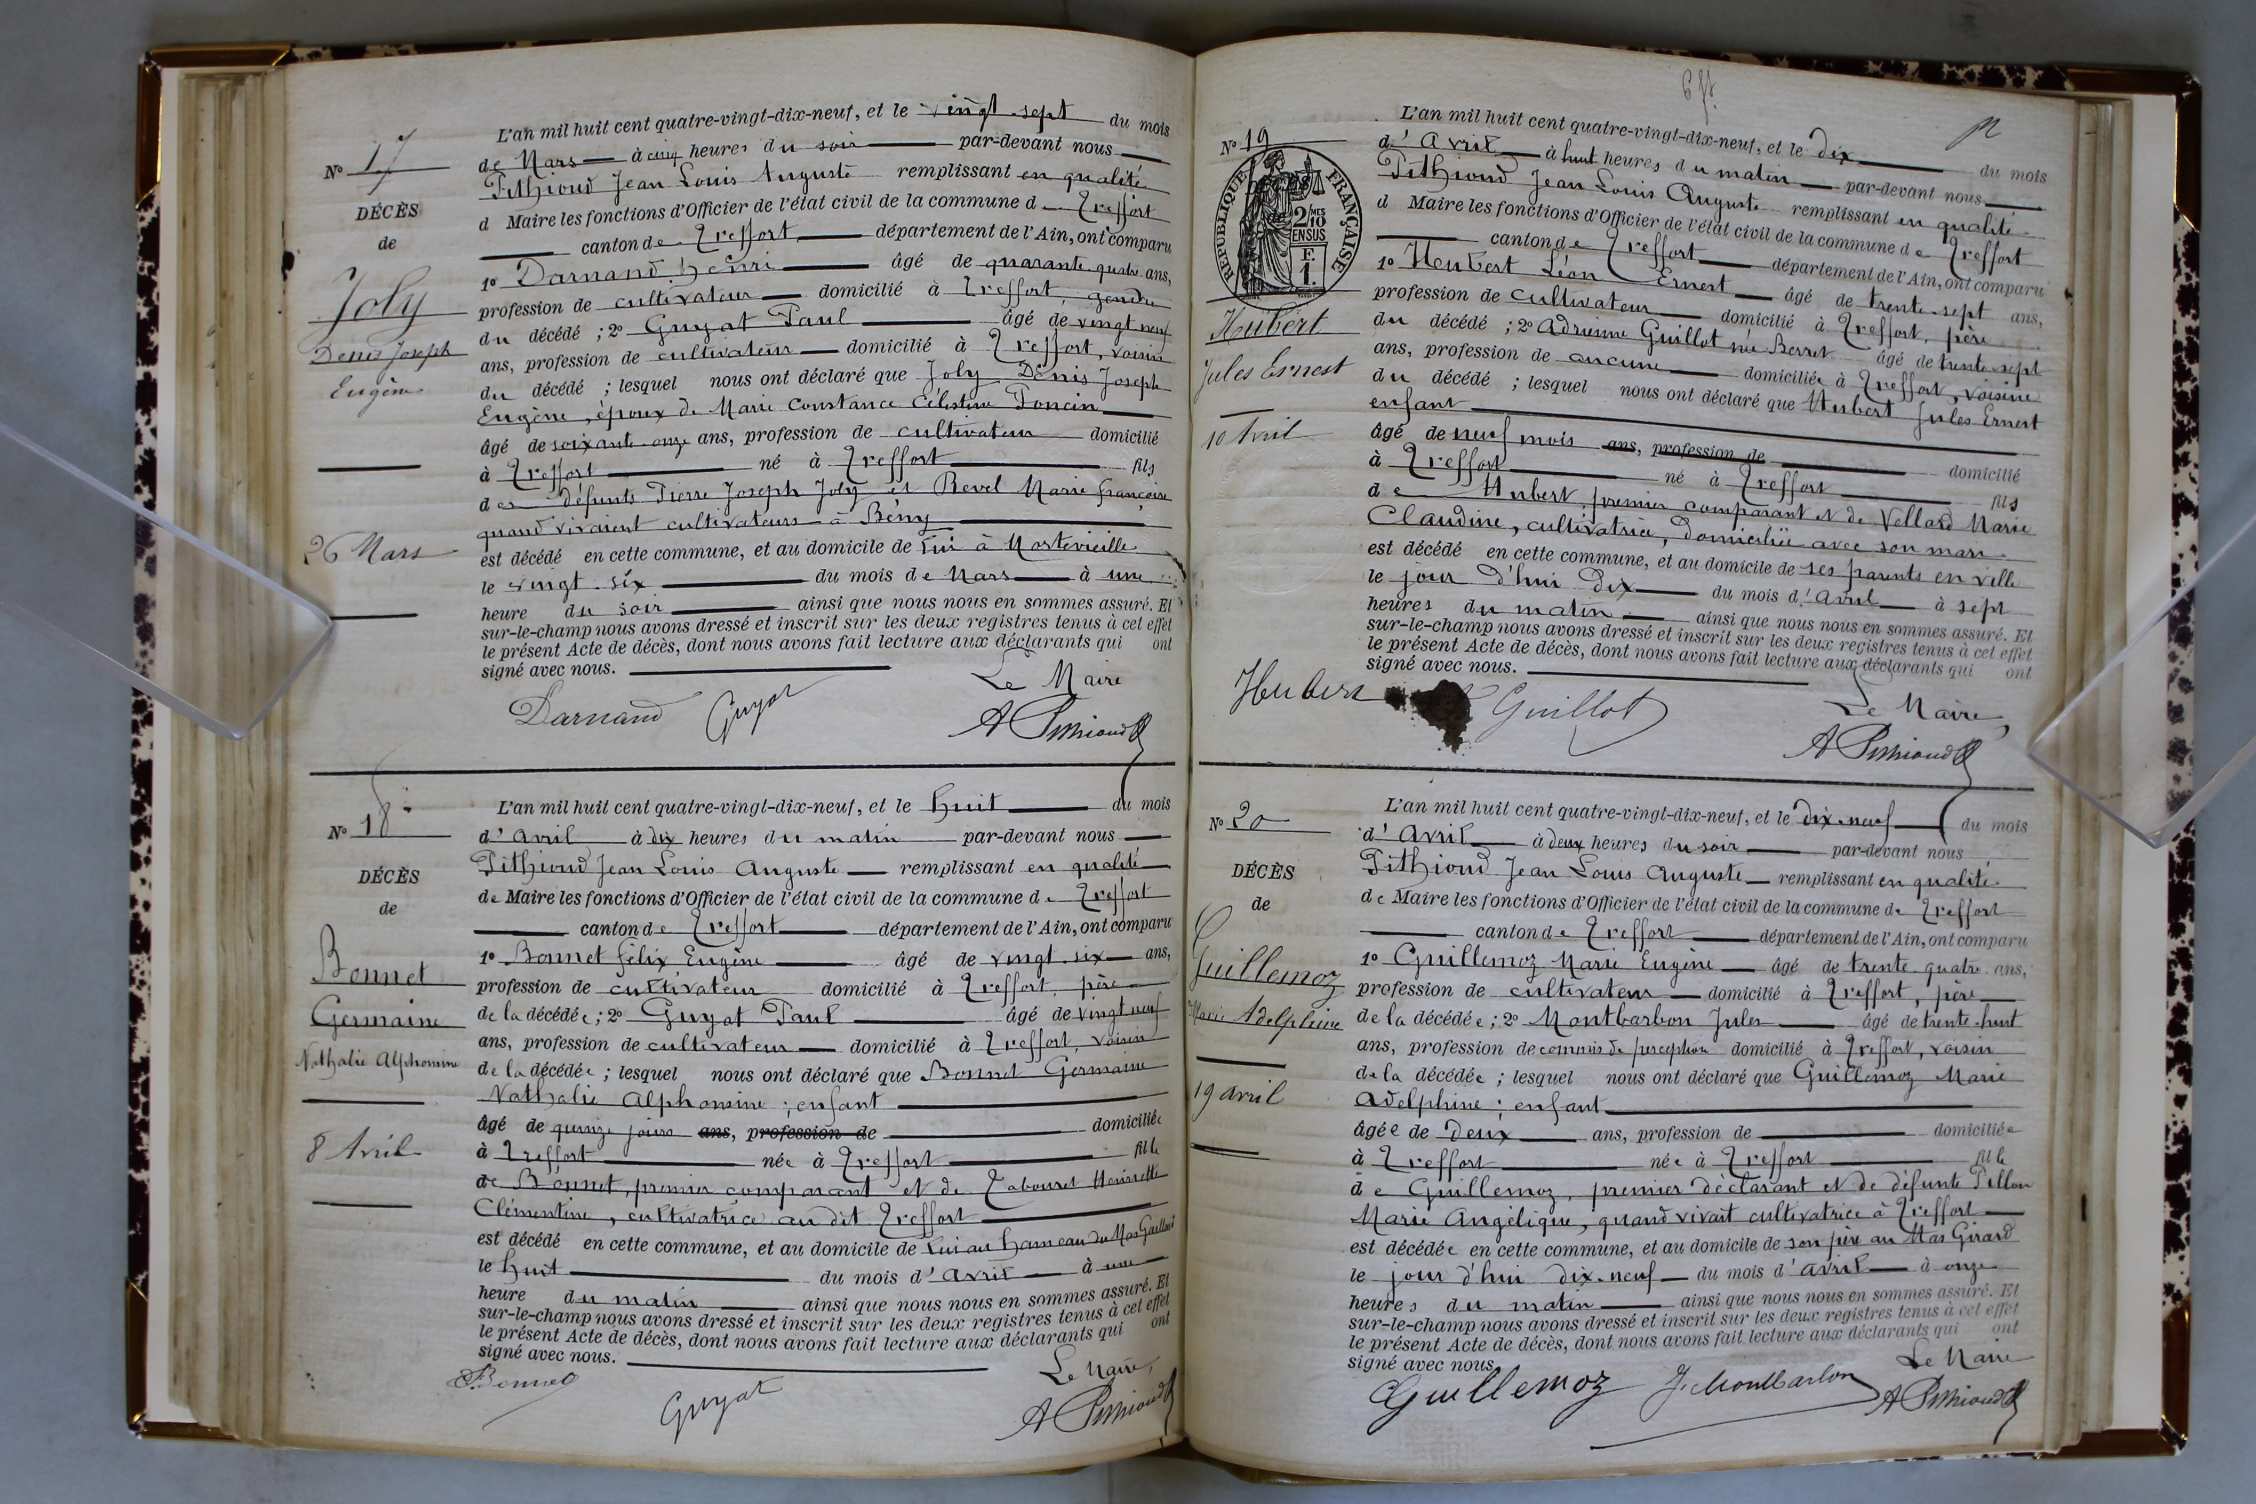 N° 17
DÉCÈS
de
Joly
Denis Joseph
Eugène
26 Mars
L'an mil huit cent quatre-vingt-dix-neuf, et le vingt-sept du mois
de Mars à cinq heures du soir par-devant nous
Pithioud Jean Louis Auguste remplissant en qualité
d Maire les fonctions d'Officier de l'état civil de la commune d Treffort
canton de Treffort département de l'Ain, ont comparu
1° Darnand Henri âgé de quarante quatre ans,
profession de cultivateur domicilié à Treffort, gendre
du décédé ; 2° Guyat Paul âgé de vingt neuf
ans, profession de cultivateur domicilié à Treffort, voisin
du décédé ; lesquel nous ont déclaré que Joly Denis Joseph
Eugène, époux de Marie Constance Célestine Poncin
âgé de soixante onze ans, profession de cultivateur domicilié
à Treffort né à Treffort fils
des défunts Pierre Joseph Joly et Revel Marie françoise
quand vivaient cultivateurs à Bény
est décédé en cette commune, et au domicile de lui à Montevieille
le vingt six du mois de Mars à une
heure du soir ainsi que nous nous en sommes assuré. Et
sur-le-champ nous avons dressé et inscrit sur les deux registres tenus à cet effet
le présent Acte de décès, dont nous avons fait lecture aux déclarants qui ont
signé avec nous.
Le Maire
Darnand Guyat A Pithioud
N° 18
DÉCÈS
de
Bonnet
Germaine
Nathalie Alphonsine
8 Avril
L'an mil huit cent quatre-vingt-dix-neuf, et le huit du mois
d'avril à dix heures du matin par-devant nous
Pithioud Jean Louis Auguste remplissant en qualité
de Maire les fonctions d'Officier de l'état civil de la commune de Treffort
canton de Treffort département de l'Ain, ont comparu
1° Bonnet félix Eugène âgé de vingt-six ans,
profession de cultivateur domicilié à Treffort, père
de la décédée ; 2° Guyat Paul âgé de vingt neuf
ans, profession de cultivateur domicilié à Treffort, voisin
de la décédée ; lesquel nous ont déclaré que Bonnet Germaine
Nathalie Alphonsine ; enfant
âgé de quinze jours ans, profession de domiciliée
à Treffort née à Treffort fille
de Bonnet, premier comparant et de Tabouret Henriette
Clémentine, cultivatrice au dit Treffort
est décédé en cette commune, et au domicile de lui au hameau du Mas Guillard
le huit du mois d'avril à une
heure du matin ainsi que nous nous en sommes assuré. Et
sur-le-champ nous avons dressé et inscrit sur les deux registres tenus à cet effet
le présent Acte de décès, dont nous avons fait lecture aux déclarants qui ont
signé avec nous.
Le Maire,
Bonnet Guyat A Pithioud
N° 19
RÉPUBLIQUE FRANÇAISE
2 MES
10
EN SUS
F.
1.
Hubert
Jules Ernest
10 Avril
L'an mil huit cent quatre-vingt-dix-neuf, et le dix du mois
d'Avril à huit heures du matin par-devant nous
Pithioud Jean Louis Auguste remplissant en qualité
d Maire les fonctions d'Officier de l'état civil de la commune de Treffort
canton de Treffort département de l'Ain, ont comparu
1° Hubert Léon Ernest âgé de trente-sept ans,
profession de cultivateur domicilié à Treffort, père
du décédé ; 2° Adrienne Guillot née Berret âgé de trente-sept
ans, profession de aucune domiciliée à Treffort, voisine
du décédé ; lesquel nous ont déclaré que Hubert Jules Ernest
enfant
âgé de neuf mois ans, profession de domicilié
à Treffort né à Treffort fils
de Hubert, premier comparant et de Vellard Marie
Claudine, cultivatrice, domiciliée avec son mari
est décédé en cette commune, et au domicile de ses parents en ville
le jour d'hui dix du mois d'avril à sept
heures du matin ainsi que nous nous en sommes assuré. Et
sur-le-champ nous avons dressé et inscrit sur les deux registres tenus à cet effet
le présent Acte de décès, dont nous avons fait lecture aux déclarants qui ont
signé avec nous.
Le Maire,
Hubert Guillot A Pithioud
N° 20
DÉCÈS
de
Guillemoz
Marie Adelphine
19 avril
L'an mil huit cent quatre-vingt-dix-neuf, et le dix-neuf du mois
d'Avril à deux heures du soir par-devant nous
Pithioud Jean Louis Auguste remplissant en qualité
de Maire les fonctions d'Officier de l'état civil de la commune de Treffort
canton de Treffort département de l'Ain, ont comparu
1° Guillemoz Marie Eugène âgé de trente-quatre ans,
profession de cultivateur domicilié à Treffort, père
de la décédée ; 2° Montbarbon Jules âgé de trente-huit
ans, profession de commis de perception domicilié à Treffort, voisin
de la décédée ; lesquel nous ont déclaré que Guillemoz Marie
Adelphine ; enfant
âgée de deux ans, profession de domiciliée
à Treffort née à Treffort fille
de Guillemoz, premier déclarant et de défunte Pillon
Marie Angélique, quand vivait cultivatrice à Treffort
est décédée en cette commune, et au domicile de son père au Mas Girard
le jour d'hui dix-neuf du mois d'avril à onze
heures du matin ainsi que nous nous en sommes assuré. Et
sur-le-champ nous avons dressé et inscrit sur les deux registres tenus à cet effet
le présent Acte de décès, dont nous avons fait lecture aux déclarants qui ont
signé avec nous.
Le Maire
Guillemoz J. Montbarbon A Pithioud